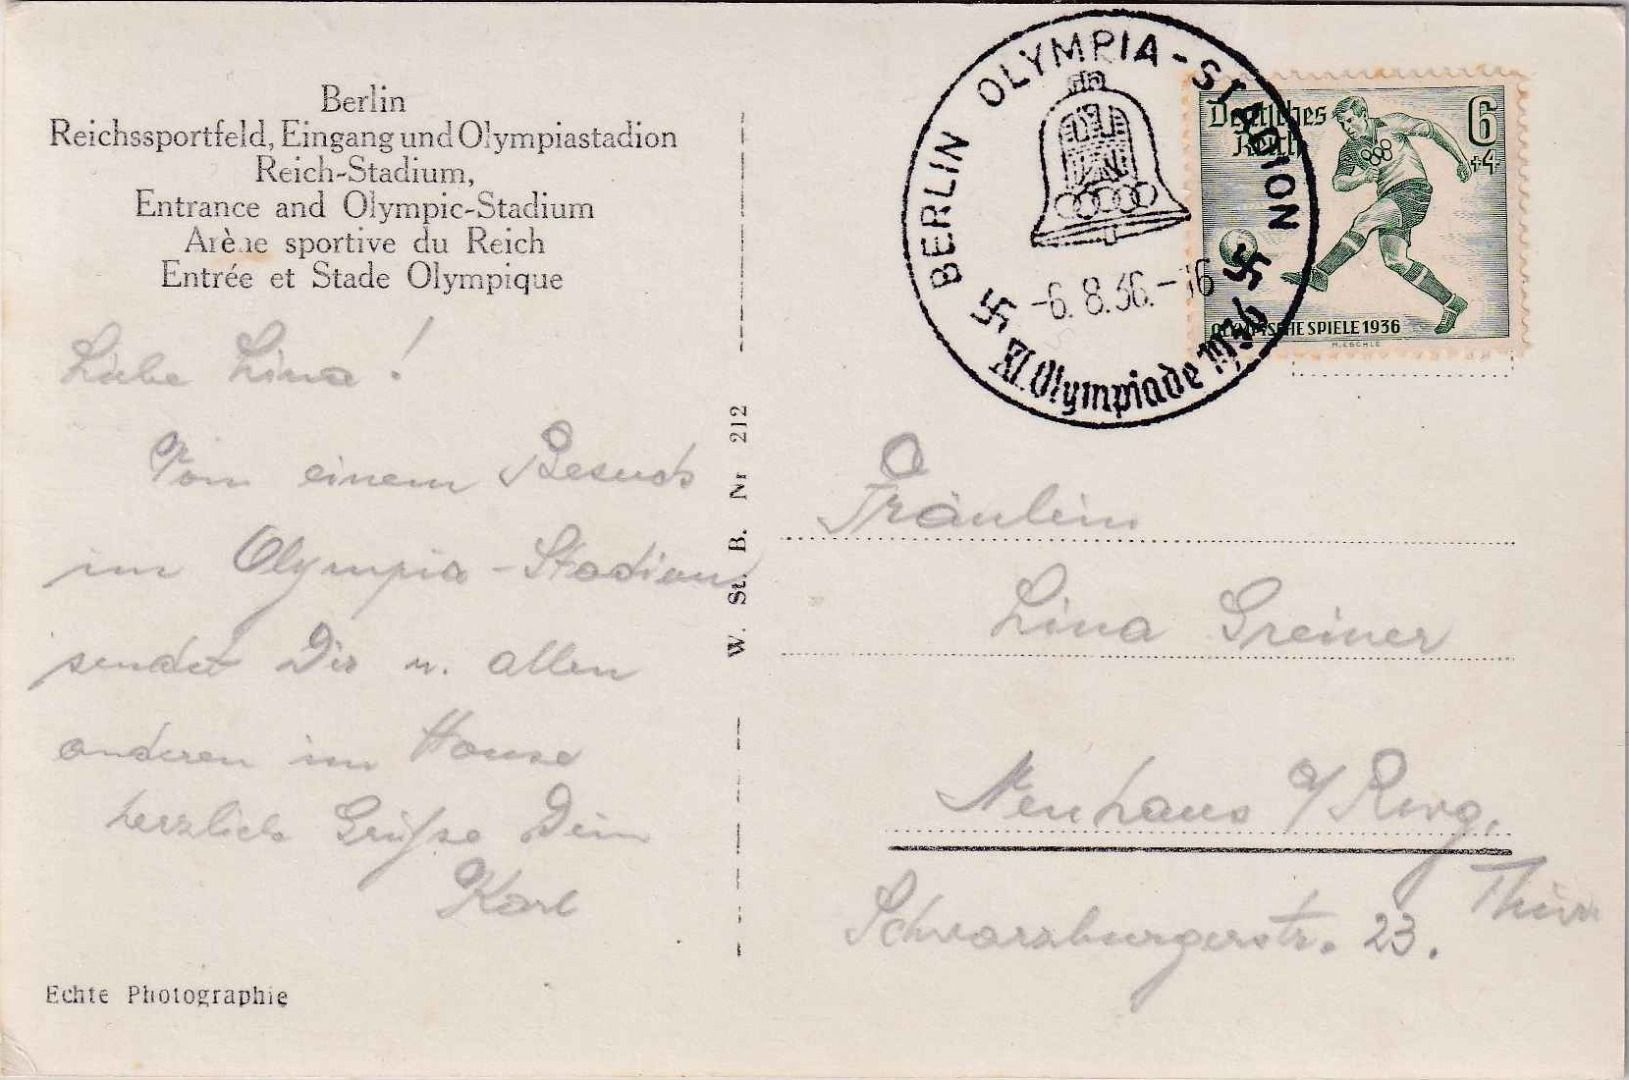 Berlin
Reichssportfeld, Eingang und Olympiastadion
Reich-Stadium,
Entrance and Olympic-Stadium
Arène sportive du Reich
Entrée et Stade Olympique
Liebe Lina!
Vom einem Besuch
im Olympia-Stadion
sendet Dir u. allen
anderen im Hause
herzlich Grüße Dein
Karl
Echte Photographie
W. St. B. Nr 212
BERLIN OLYMPIA-STADION
-6.8.36.-16
XI. Olympiade 1936
Deutsches
Reich
6
+4
OLYMPISCHE SPIELE 1936
M. ESCHLE
Fräulein
Lina Greiner
Neuhaus a/Rwg.
Thür
Schwarzburgerstr. 23.